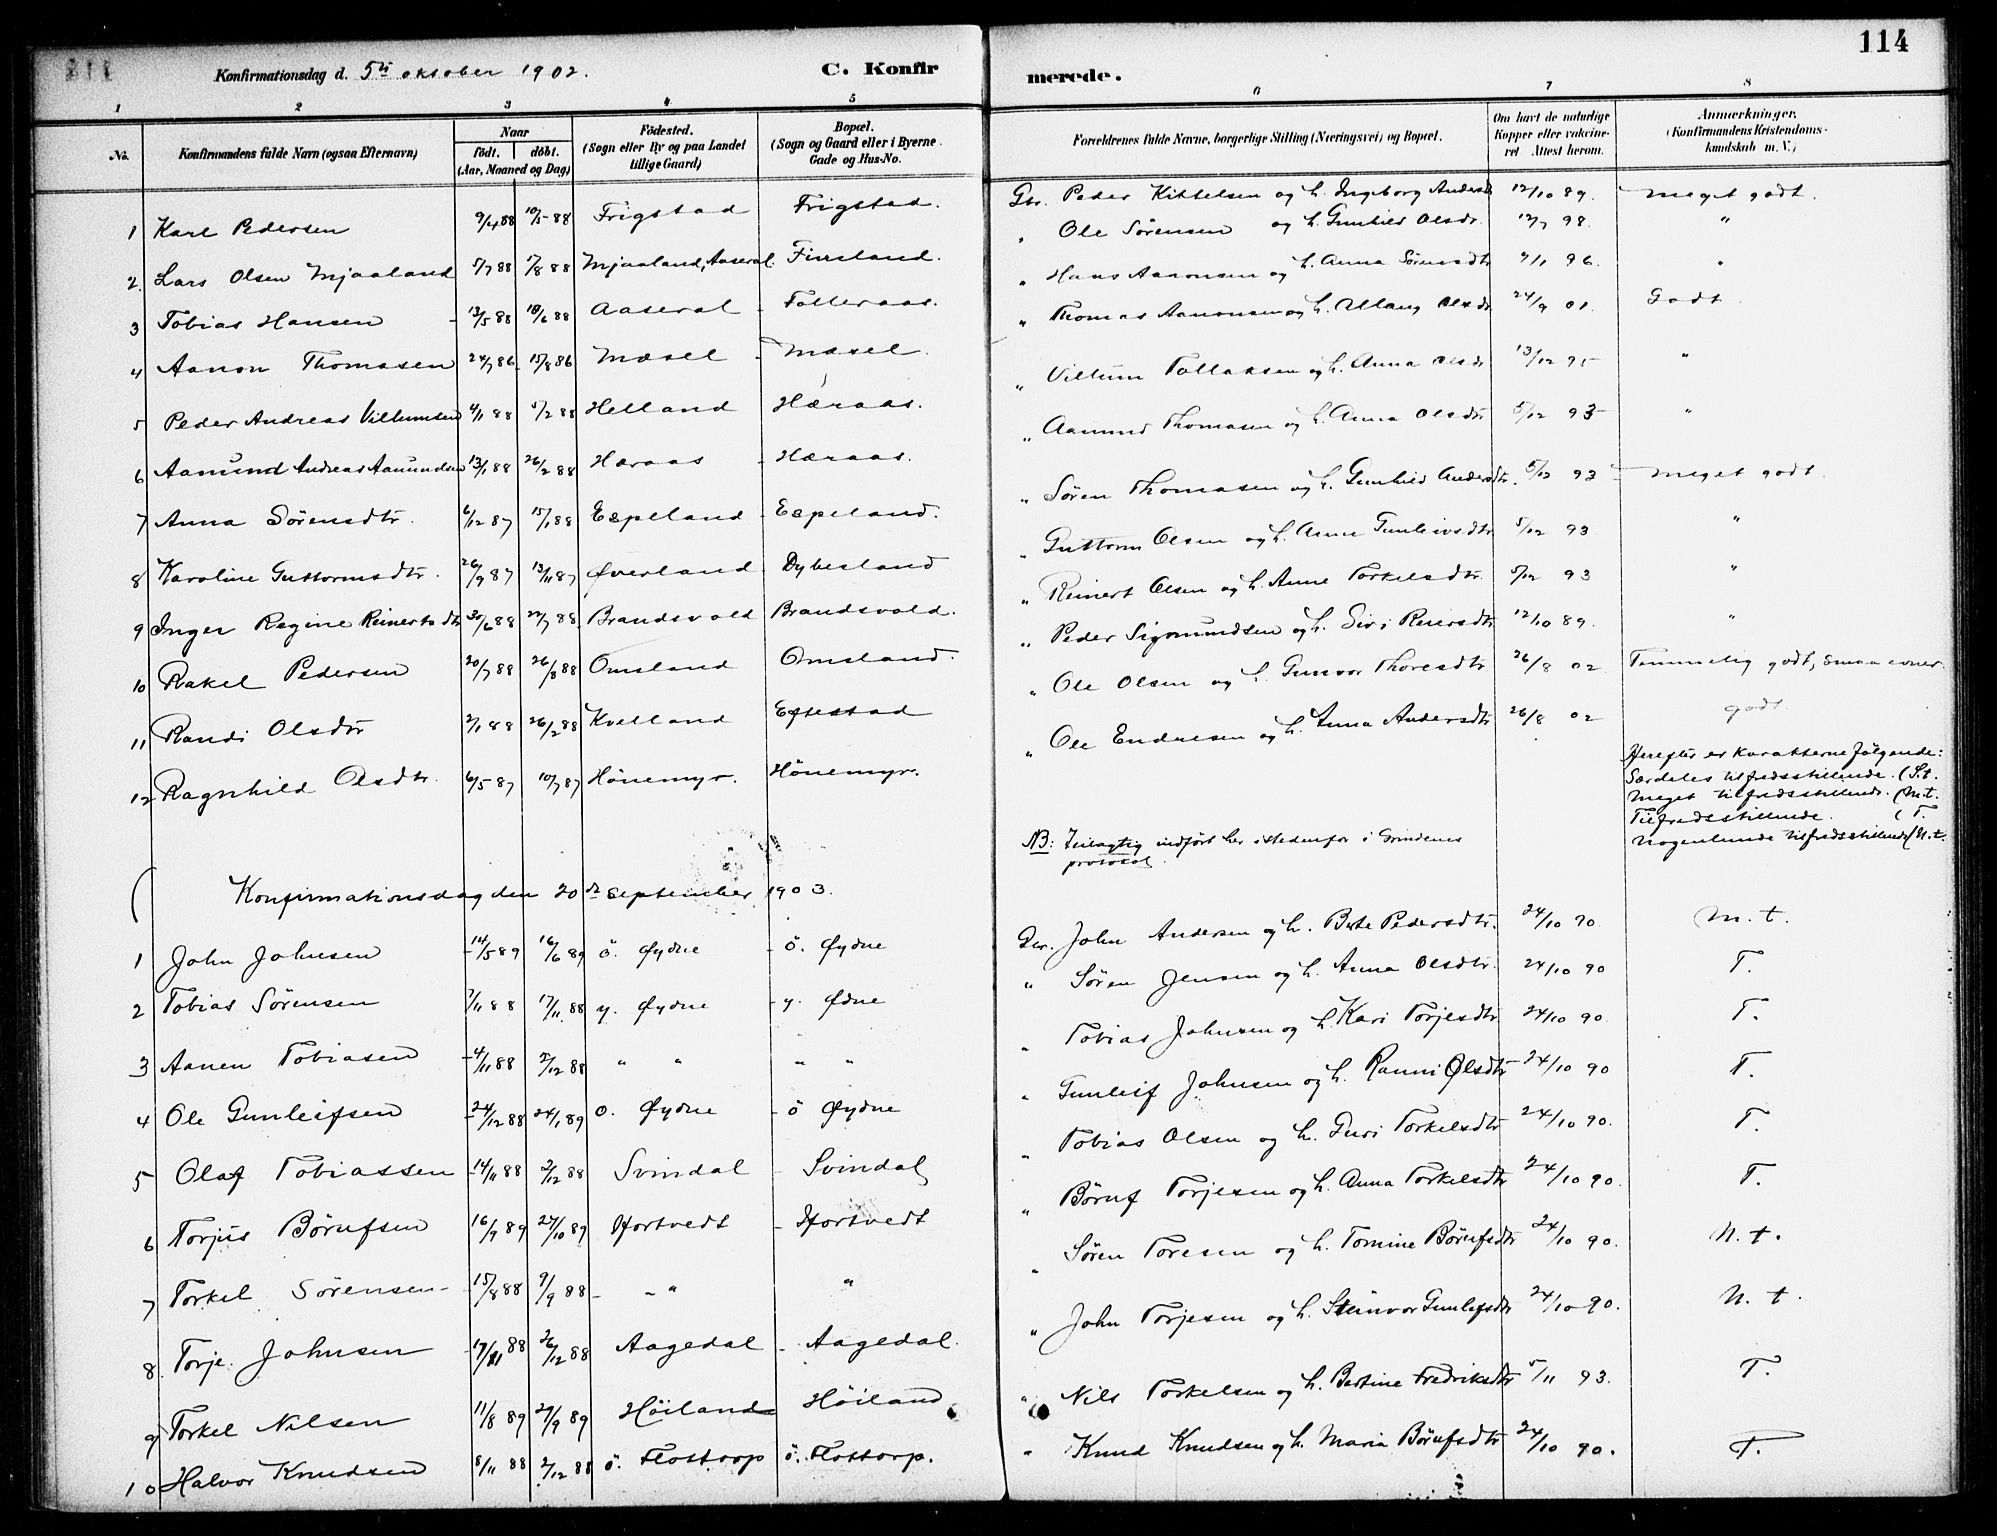 114
Konfirmationsdag d. 5te oktober 1902. C. Konfirmerede.
1 2 3 4 5 6 7 8
No. Konfirmandens fulde Navn (ogsaa Efternavn) Naar født. døbt. (Aar, Maaned og Dag) Fødested. (Sogn eller By og paa Landet tillige Gaard) Bopæl. (Sogn og Gaard eller i Byerne Gade og Hus-No. Forældrenes fulde Navne, borgerlige Stilling (Næringsvei) og Bopæl. Om havt de naturlige Kopper eller vakcineret. Attest herom. Anmærkninger. (Konfirmandens Kristendomskundskab m. V.)
1 Karl Pedersen 9/4 88 10/5 88 Frigstad Frigstad. Gbr. Peder Kittelsen og h. Ingeborg Andersdtr 12/10 89. Meget godt.
2. Lars Olsen Mjaaland 5/7 88 17/8 88 Mjaaland, Aaseral. Finsland. " Ole Sørensen og h. Gunhild Olsdr. 12/7 98. "
3 Tobias Hansen 13/5 88 10/6 88 Aaseral Falleraas. " Hans Aanonsen og h. Anna Sørensdtr 9/11 96. "
4 Aanon Thomasen 24/7 86 15/8 86 Mæsel Mæsel. " Thomas Aanonsen og h. Allaug Olsdr 24/9 01. Godt
5 Peder Andreas Villumsen 4/1 88 5/2 88 Helland Høraas. " Villum Tallaksen og h. Anna Olsdr 13/12 95 "
6 Aanund Andreas Aanundsen 13/1 88 26/2 88 Høraas Høraas. " Aanund Thomasen og h. Anna Olsdtr 5/12 93 "
7 Anna Sørensdtr. 6/12 87 15/1 88 Espeland Espeland. " Søren Thomasen og h. Gunhild Andersdtr. 5/12 93 Meget godt.
8 Karoline Guttormsdtr. 26/9 87 13/11 87 Øverland Dybesland " Guttorm Olsen og h. Anne Gunleivsdtr 5/12 93 "
9 Inger Regine Reinertsdtr 30/6 88 22/7 88. Brandsvold Brandsvold. " Reinert Olsen og h. Anne Torkelsdtr. 5/12 93 "
10 Rakel Pedersen 20/7 88 26/8 88 Omsland Omsland. " Peder Sigmundsen og h. Siri Reiersdtr 12/10 89. "
11 Randi Olsdtr 2/1 88 26/2 88 Kvelland Eftestad " Ole Olsen og h. Gunvor Thoresdtr 26/8 02 Temmelig godt, smaa evner.
12 Ragnhild Olsdtr. 6/5 87 10/7 87 Hønemyr. Hønemyr. " Ole Endresen og h. Anna Andersdtr 26/8 02 godt
Herefter er karakterne følgende:
Særdeles tilfredsstillende. (S.t.
Meget tilfredsstillende. (M.t.
Tilfredsstillende. (T.
Nogenlunde tilfredsstillende (N.t.
NB: Feilagtig indført her istedenfor i Grindenes
protokol.
Konfirmationsdag den 20de september 1903.
1 John Johnsen 14/5 89 16/6 89 ö. Øydne ö. Øydne Gbr. John Andersen og h. Berte Pedersdtr. 24/10 90. M. t.
2 Tobias Sørensen 7/11 88 17/11 88 y. Øydne y. Ødne " Søren Jensen og h. Anna Olsdtr. 24/10 90 T.
3 Aanen Tobiasen 4/11 88 2/12 88 " " " " " Tobias Johnsen og h. Kari Torjesdtr 24/10 90. T.
4 Ole Gunleifsen 24/12 88 24/1 89 ö. Øydne ö Øydne " Gunleif Johnsen og h. Ranni Olsdtr 24/10 90 T.
5 Olaf Tobiassen 14/11 88 2/12 88 Svindal Svindal " Tobias Olsen og h. Guri Torkelsdtr 24/10 90. T.
6 Torjus Børufsen 16/9 89 27/10 89 Hortvedt Hortvedt " Børuf Torjesen og h. Anna Torkelsdtr 24/10 90. T.
7 Torkel Sørensen 15/8 88 9/9 88 " " " Søren Toresen og h. Tomine Børufsdtr 24/10 90. N. t.
8. Torje. Johnsen 17/11 88 26/12 88 Aagedal Aagedal. " John Torjesen og h. Steinvor Gunlefsdtr 24/10 90. N. t.
9 Torkel Nilsen 11/8 89 29/9 89 Høiland Høiland " Nils Torkelsen og h. Bertine Fredriksdtr 5/11 93. T.
10 Halvor Knudsen 8/11 88 2/12 88 ö. Flottorp ö. Flottorp. " Knud Knudsen og h. Maria Børufsdtr 24/10 90. T.